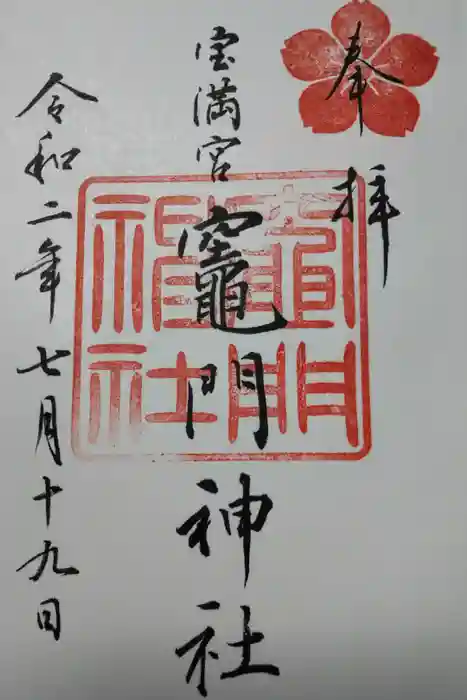 奉拝
宝満宮
竈門神社
竈門神社
令和二年七月十九日